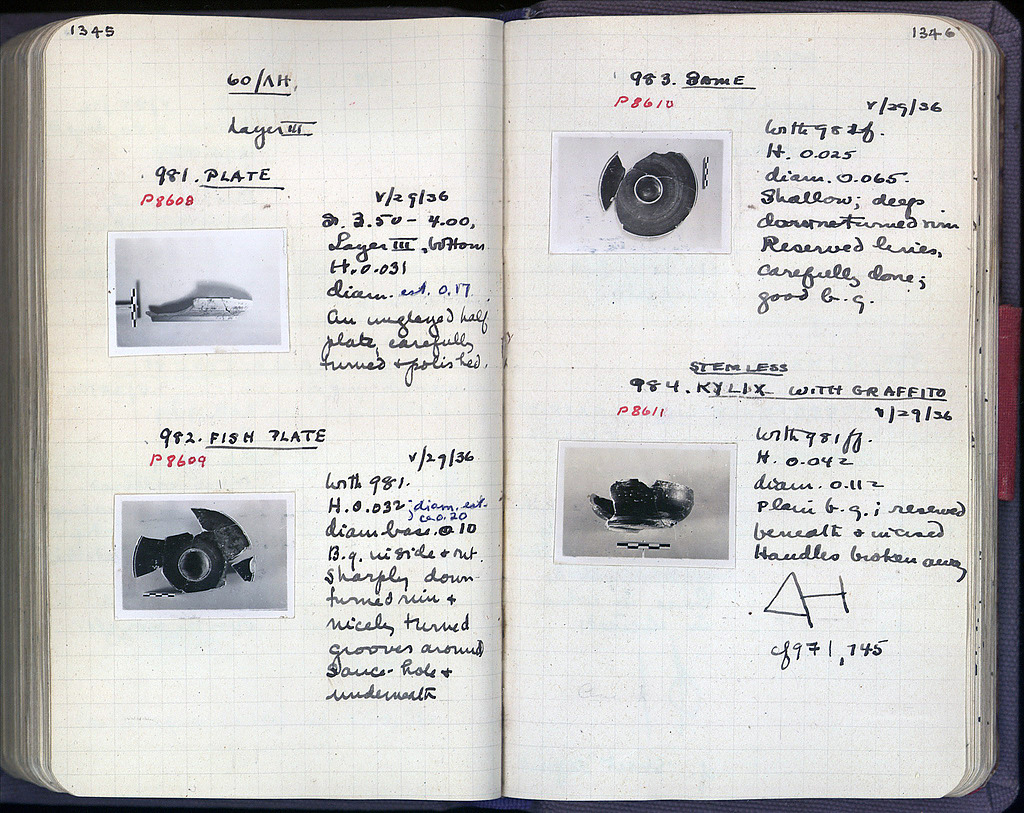 1345
60/ΛH
Layer III
981. PLATE
P8608
V/29/36
3.50 – 4.00,
Layer III, bottom
H. 0.031
diam. est. 0.17
An unglazed half
plate, carefully
turned + polished.
982. FISH PLATE
P8609
V/29/36
With 981.
H. 0.032; diam. est.
ca 0.20
diam base. 0.10
B.g. inside + out.
Sharply down-
turned rim +
nicely turned
grooves around
sauce-hole +
underneath
1346
983. SAME
P8610
V/29/36
With 981f.
H. 0.025
diam. 0.065.
Shallow; deep
downturned rim
Reserved lines,
carefully done;
good b.g.
STEMLESS
984. KYLIX WITH GRAFFITO
P8611
V/29/36
With 981ff.
H. 0.042
diam. 0.112
Plain b.g.; reserved
beneath + incised
Handles broken away
ΔH
cf 971, 745